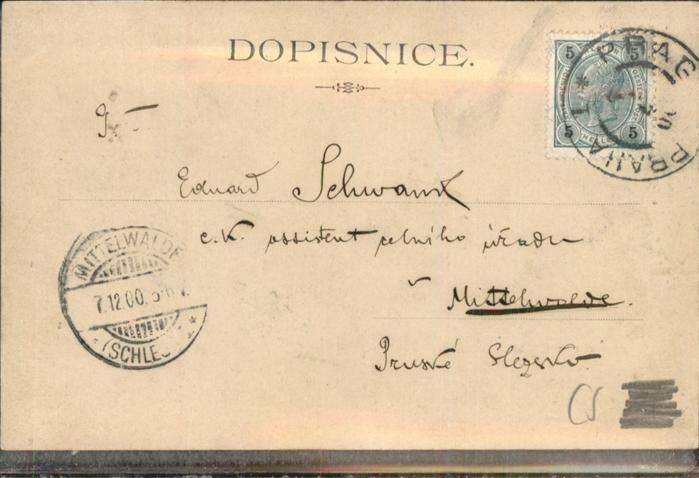 DOPISNICE.
5 5
5 5
PRAG
PRAHA
Eduard Schwank
c.k. assistent celního úřadu
v Mittelwalde.
Pruské Slezsko
MITTELWALDE
7.12.00.
(SCHLES
CS